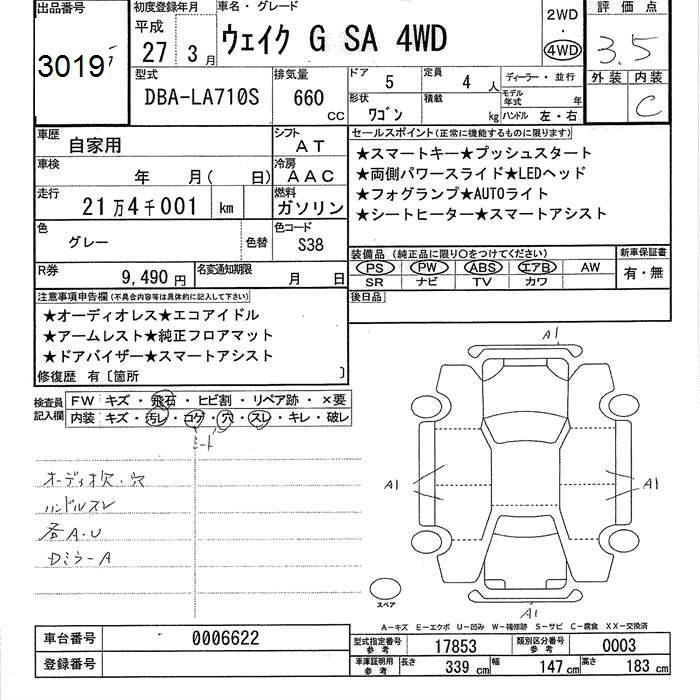 出品番号
3019
初度登録年月
平成 27 3月
車名・グレード
ウェイク G SA 4WD
2WD
・
4WD
評価点
3.5
外装 内装
C
型式
DBA-LA710S
排気量
660 CC
ドア 5
定員 4 人
ディーラー・並行
形状 ワゴン
積載 kg
モデル年式 年
ハンドル 左・右
車歴 自家用
シフト AT
車検 年 月( 日)
冷房 AAC
走行 21万4千001 km
燃料 ガソリン
色 グレー
色替
色コード S38
R券 9,490円
名変通知期限 月 日
セールスポイント(正常に機能するものに限ります)
★スマートキー★プッシュスタート
★両側パワースライド★LEDヘッド
★フォグランプ★AUTOライト
★シートヒーター★スマートアシスト
装備品 (純正品に限り○をつけてください)
PS PW ABS エアB AW
SR ナビ TV カワ
新車保証書
有・無
後日品
注意事項申告欄(不具合内容等は具体的に記入して下さい)
★オーディオレス★エコアイドル
★アームレスト★純正フロアマット
★ドアバイザー★スマートアシスト
修復歴 有〔箇所 〕
検査員記入欄
FW キズ・飛石・ヒビ割・リペア跡・×要
内装 キズ・汚レ・コゲ・穴・スレ・キレ・破レ
シート
オーディオ欠・穴
ハンドルスレ
各A・U
Dミラ-A
A1
A1
A1
A1
スペア
A-キズ E-エクボ U-凹み W-補修跡 S-サビ C-腐食 XX-交換済
車台番号 0006622
登録番号
型式指定番号 参考 17853
類別区分番号 参考 0003
車庫証明用 参考 長さ 339 cm 幅 147 cm 高さ 183 cm